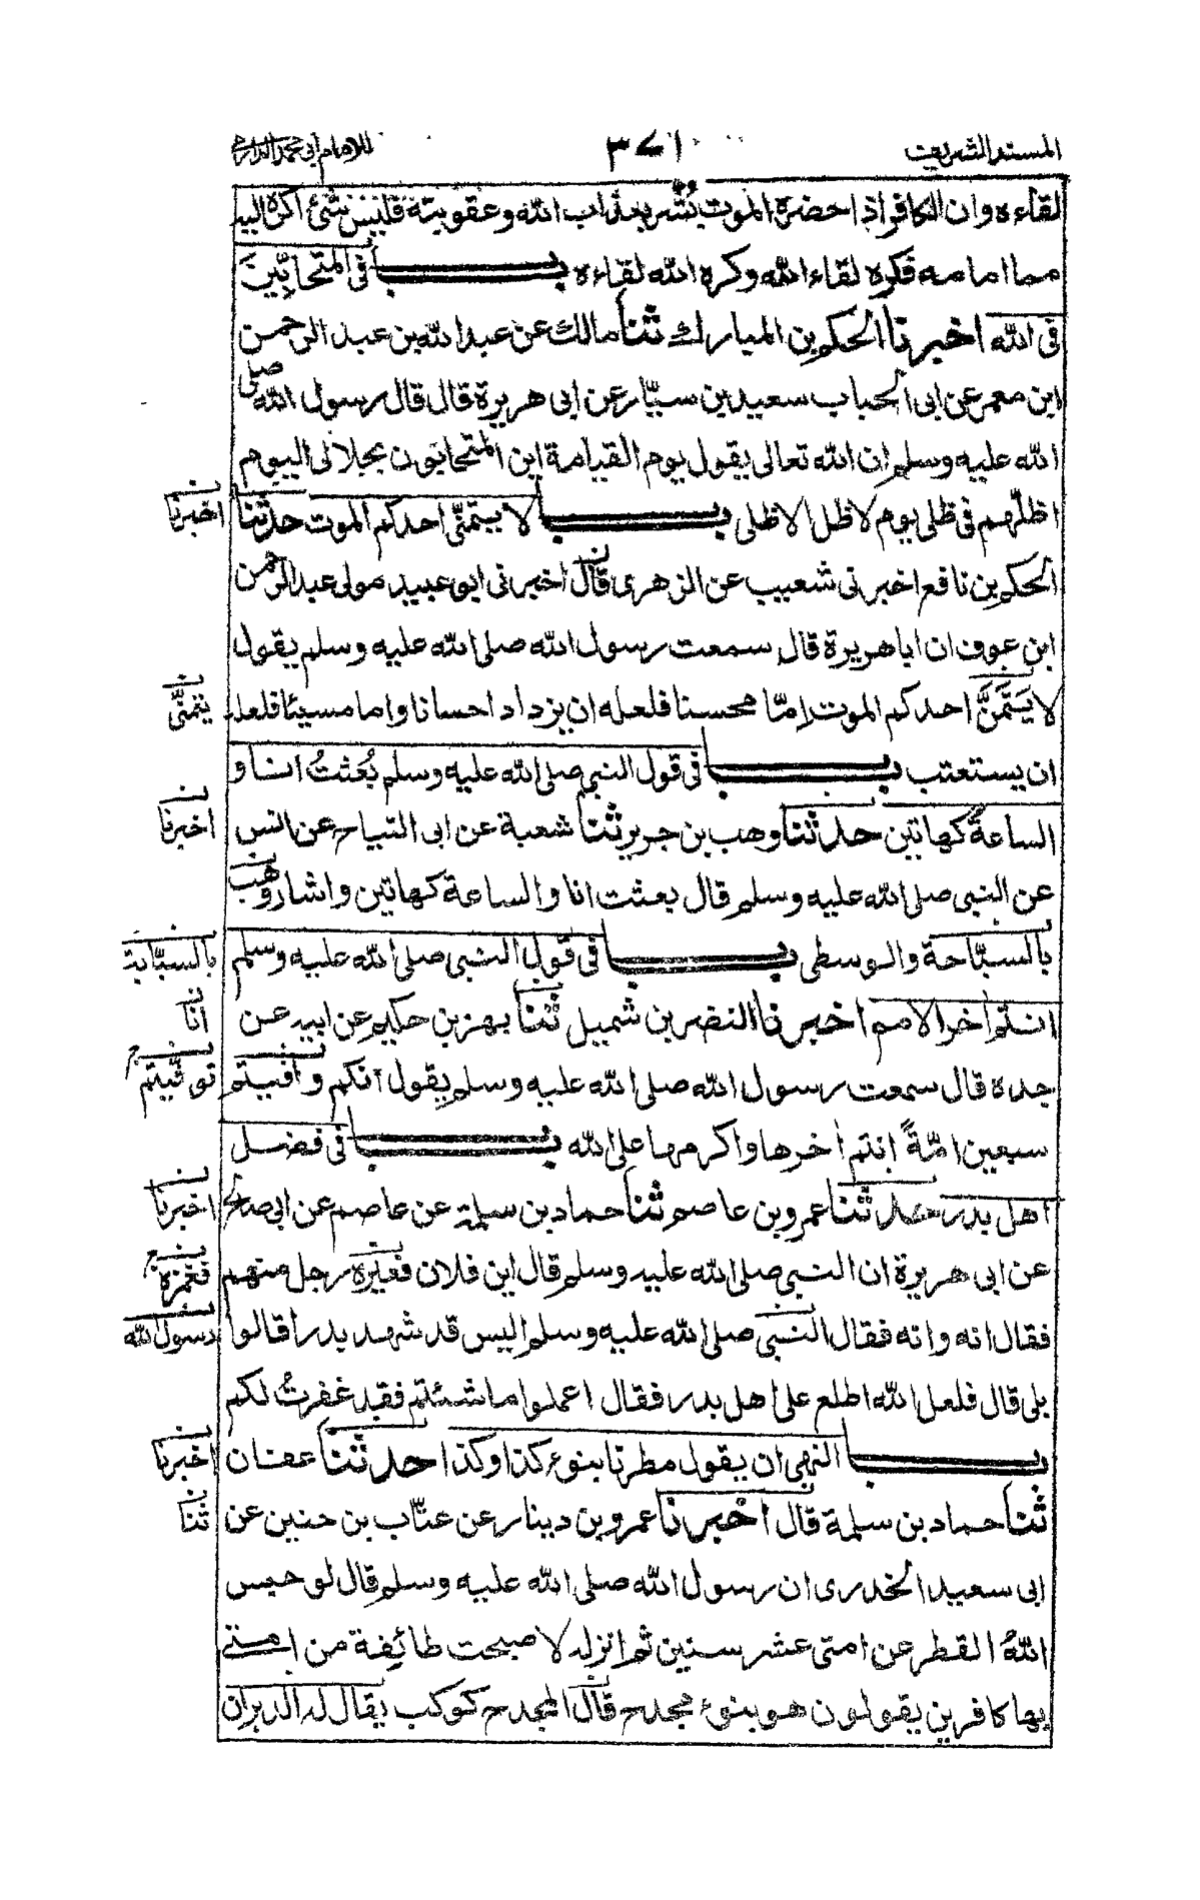 المسند الشريف ٣٧١ للامام ابى محمد الدارمى
لقاءه وان الكافر اذا حضره الموت بُشّر بعذاب الله وعقوبته فليس شئ اكره اليه
مما امامه فكره لقاء الله وكره الله لقاءه باب فى المتحابّين
فى الله اخبرنا الحكم بن المبارك ثنا مالك عن عبد الله بن عبد الرحمن
ابن معمر عن ابى الحباب سعيد بن سيّار عن ابى هريرة قال قال رسول الله صلى
الله عليه وسلم ان الله تعالى يقول يوم القيامة اين المتحابّون بجلالى اليوم
اظلّهم فى ظلى يوم لا ظل الا ظلى باب لا يتمنّى احدكم الموت حدثنا
اخبرنا
الحكم بن نافع اخبرنى شعيب عن الزهرى قال اخبرنى ابو عبيد مولى عبد الرحمن
ابن عوف ان ابا هريرة قال سمعت رسول الله صلى الله عليه وسلم يقول
لا يَتَمَنَّ احدكم الموت اِمّا محسنا فلعله ان يزداد احسانا واما مسيئا فلعله
يتمنّى
ان يستعتب باب فى قول النبى صلى الله عليه وسلم بُعثتُ انا و
الساعةُ كهاتين حدثنا وهب بن جرير ثنا شعبة عن ابى التياح عن انس
اخبرنا
عن النبى صلى الله عليه وسلم قال بعثت انا والساعة كهاتين واشار وهب
بالسبّاحة والوسطى باب فى قول النبى صلى الله عليه وسلم
بالسبّابة
انتم اخر الامم اخبرنا النضر بن شميل ثنا بهز بن حكيم عن ابيه عن
انا
جده قال سمعت رسول الله صلى الله عليه وسلم يقول انكم وافيتم
توفّيتم
سبعين امّةً انتم اخرها واكرمها على الله باب فى فضل
اهل بدر حدثنا عمرو بن عاصم ثنا حماد بن سلمة عن عاصم عن ابى صالح
اخبرنا
عن ابى هريرة ان النبى صلى الله عليه وسلم قال اين فلان فغيّره رجل منهم
فغمزه
فقال انه وانه فقال النبى صلى الله عليه وسلم اليس قد شهد بدرا قالوا
رسول الله
بلى قال فلعل الله اطلع على اهل بدر فقال اعملوا ما شئتم فقد غفرتُ لكم
باب النهى ان يقول مطرنا بنوء كذا وكذا حدثنا عفان
اخبرنا
ثنا حماد بن سلمة قال اخبرنا عمرو بن دينار عن عتّاب بن حنين عن
ثنا
ابى سعيد الخدرى ان رسول الله صلى الله عليه وسلم قال لو حبس
اللهُ القطر عن امتى عشر سنين ثم انزله لاصبحت طائفة من امتى
بها كافرين يقولون هو بنوء مجدح قال المجدح كوكب يقال له الدبران